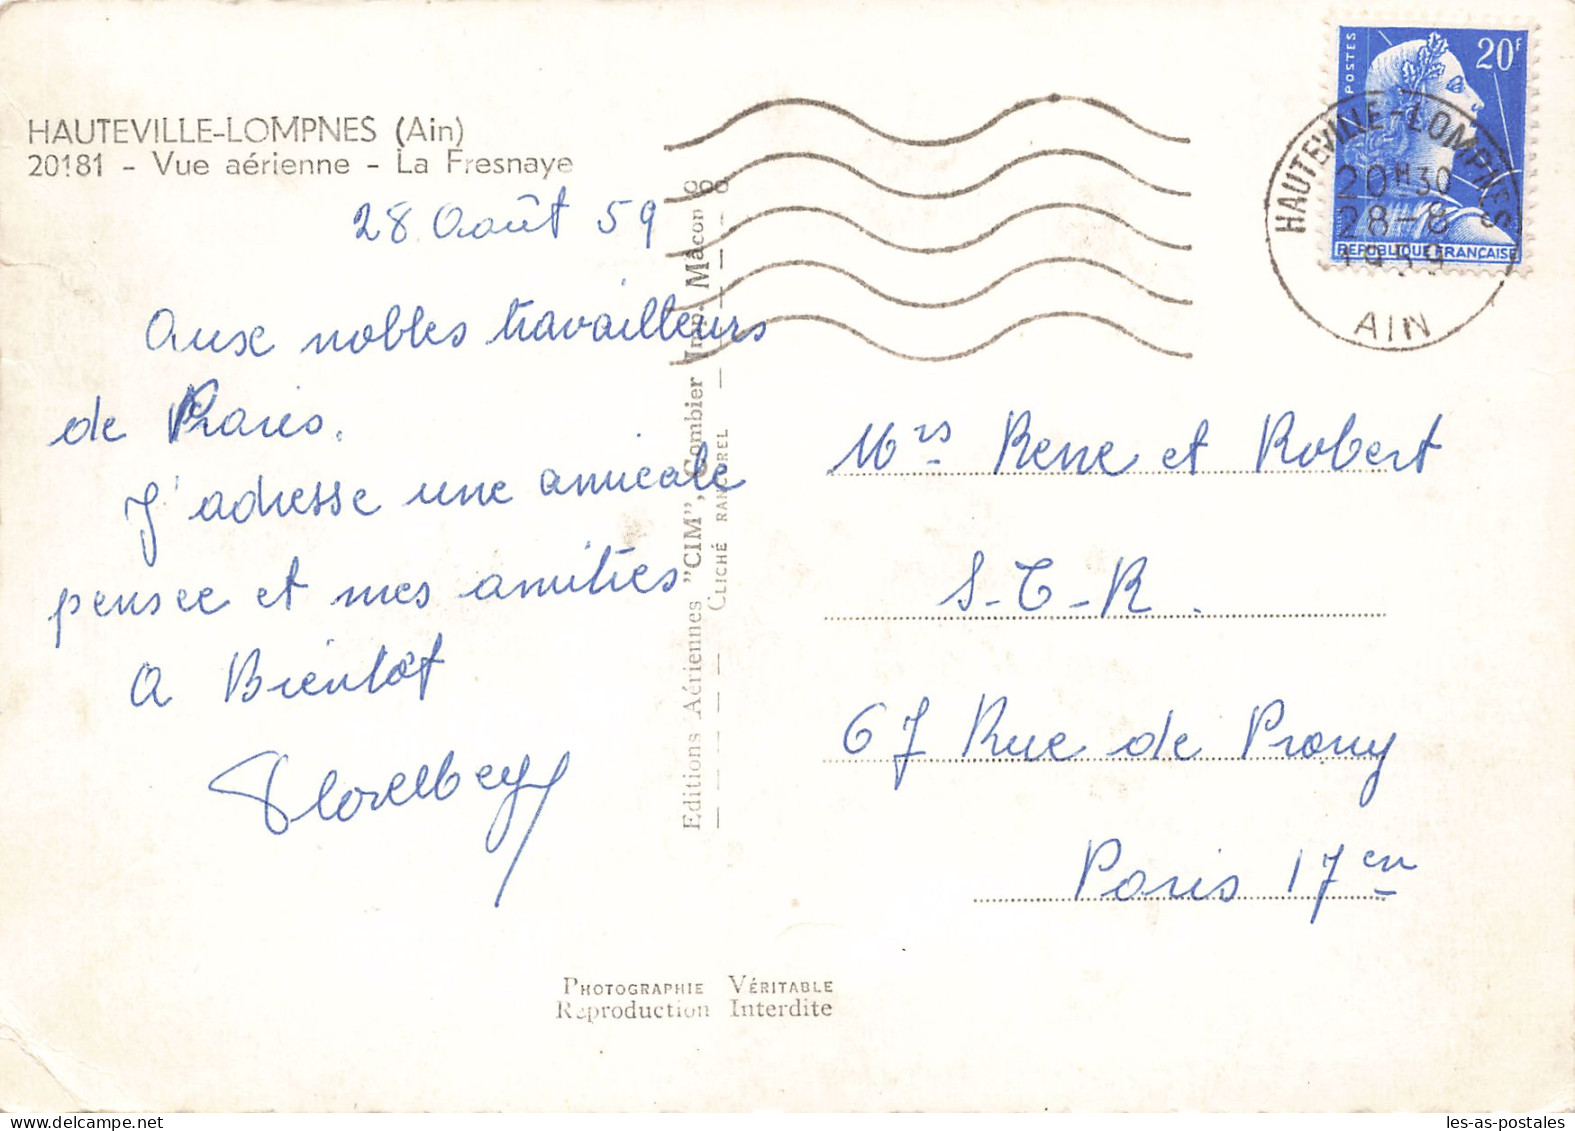 HAUTEVILLE-LOMPNES (Ain)
20181 - Vue aérienne - La Fresnaye
28 Août 59
Aux nobles travailleurs
de Paris.
J'adresse une amicale
pensee et mes amities
A Bientôt
Editions Aériennes "CIM", Combier Imp. Mâcon
CLICHÉ RANCUREL
POSTES
20F
REPUBLIQUE FRANÇAISE
HAUTEVILLE-LOMPNES
20H30
28-8
1959
AIN
Mrs Rene et Robert
S-T-R.
67 Rue de Prony
Paris 17en
PHOTOGRAPHIE VÉRITABLE
Reproduction Interdite
les-as-postales